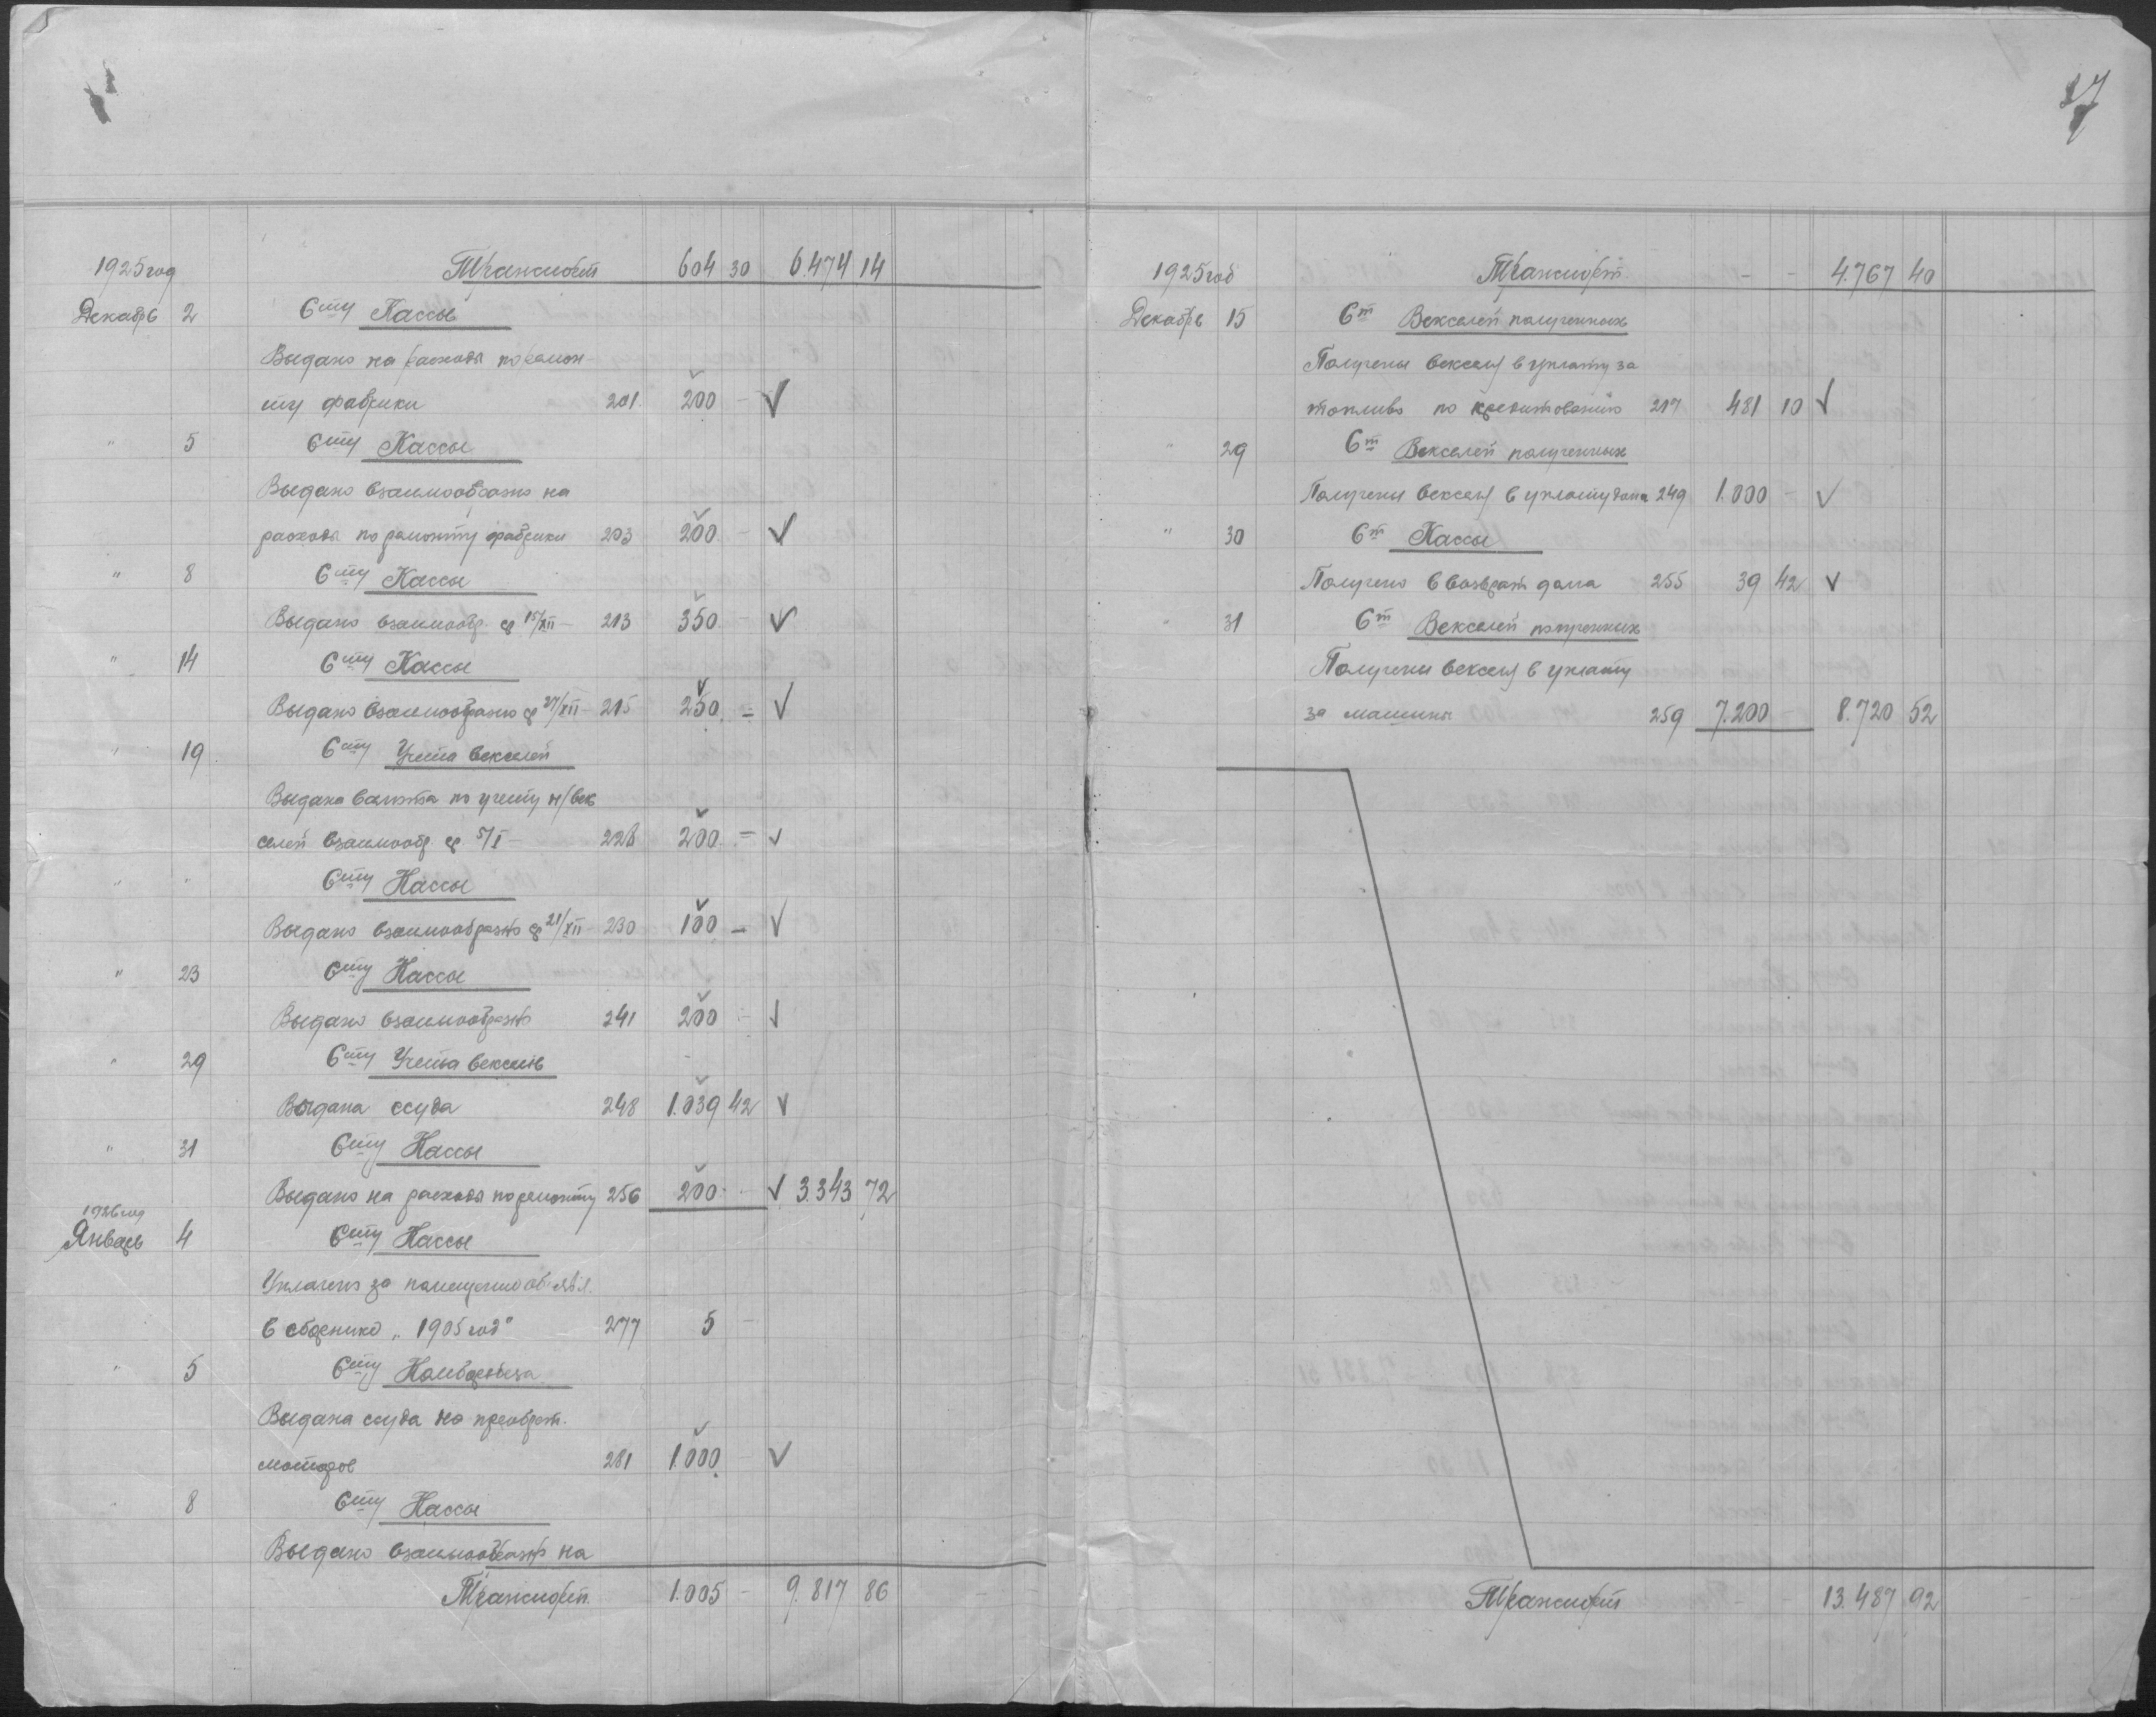 1925 год Транспорт 604 30 6.474 14
Декабрь 2 Сту Кассы
Выдано на расходы по ремон-
ту фабрики 201 200 - V
" 5 Сту Кассы
Выдано взаимообразно на
расходы по ремонту фабрики 203 200 - V
" 8 Сту Кассы
Выдано взаимообр. ср 15/XII - 213 350 - V
" 14 Сту Кассы
Выдано взаимообразно ср 27/XII - 215 250 - V
" 19 Сту Учета векселей
Выдана валюта по учету н/век
селей взаимообр. ср. 5/I - 228 200 - V
" " Сту Кассы
Выдано взаимообразно ср 21/XII - 230 100 - V
" 23 Сту Кассы
Выдано взаимообразно 241 200 - V
" 29 Сту Учета векселей
Выдана ссуда 248 1.039 42 V
" 31 Сту Кассы
Выдано на расходы по ремонту 256 200 - V 3.343 72
1926 год
Январь 4 Сту Кассы
Уплачено за помещение об'явл.
в сборнике „1905 год" 277 5 -
" 5 Сту
Выдана ссуда на приобрет.
моторов 281 1.000 V
" 8 Сту Кассы
Выдано взаимообразно на
Транспорт 1.005 - 9.817 86
27
1925 год Транспорт - - 4.767 40
Декабрь 15 Ст Векселей полученных
Получены векселя в уплату за
топливо по кредитованию 217 481 10 V
" 29 Ст Векселей полученных
Получены векселя в уплату долга 249 1.000 - V
" 30 Ст Кассы
Получено в возврат долга 255 39 42 V
" 31 Ст Векселей полученных
Получены векселя в уплату
за машины 259 7.200 - 8.720 52
Транспорт - - 13.487 92